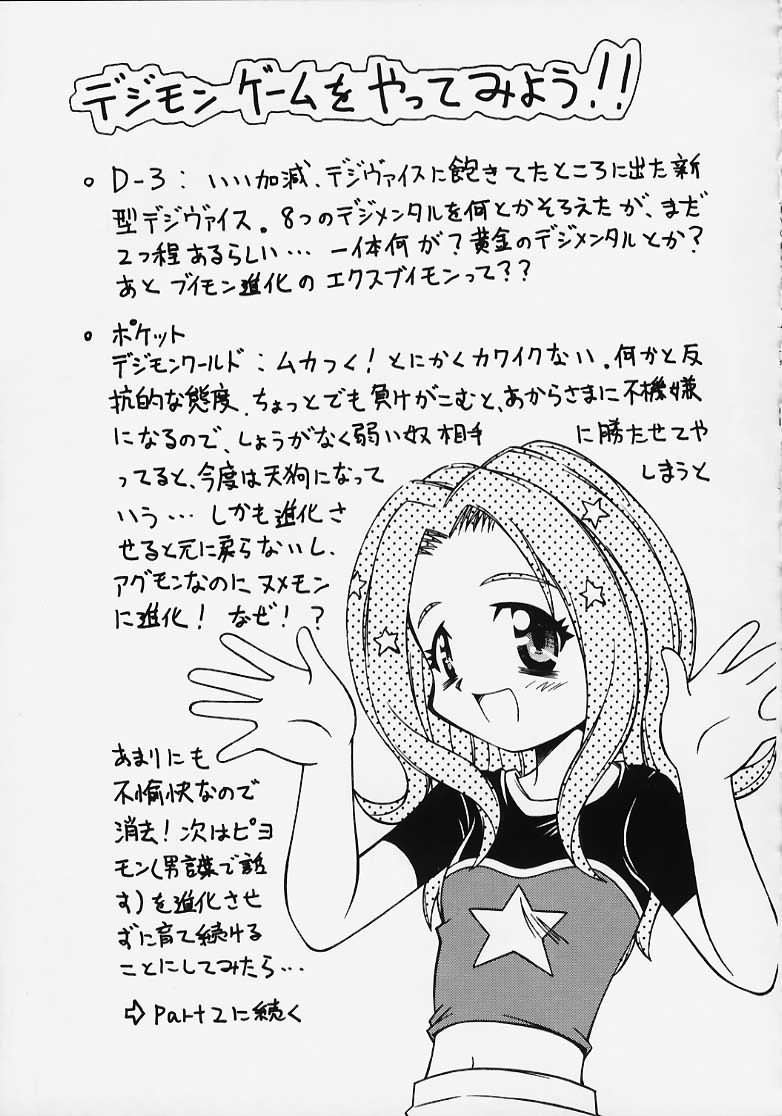 デジモンゲームをやってみよう!!
○ D-3: いい加減、デジヴァイスに飽きてたところに出た新
型デジヴァイス。8つのデジメンタルを何とかそろえたが、まだ
2つ程あるらしい… 一体何が?黄金のデジメンタルとか?
あと ブイモン進化の エクスブイモンって??
○ ポケット
デジモンワールド: ムカつく!とにかくカワイクない。何かと反
抗的な態度、ちょっとでも負けがこむと、あからさまに不機嫌
になるので、しょうがなく弱い奴相手に勝たせてや
ってると、今度は天狗になってしまうと
いう… しかも進化さ
せると元に戻らないし、
アグモンなのに ヌメモン
に進化! なぜ!?
あまりにも
不愉快なので
消去!次はピヨ
モン(男譲で話
す)を進化させ
ずに育て続ける
ことにしてみたら…
⇨ Part2に続く